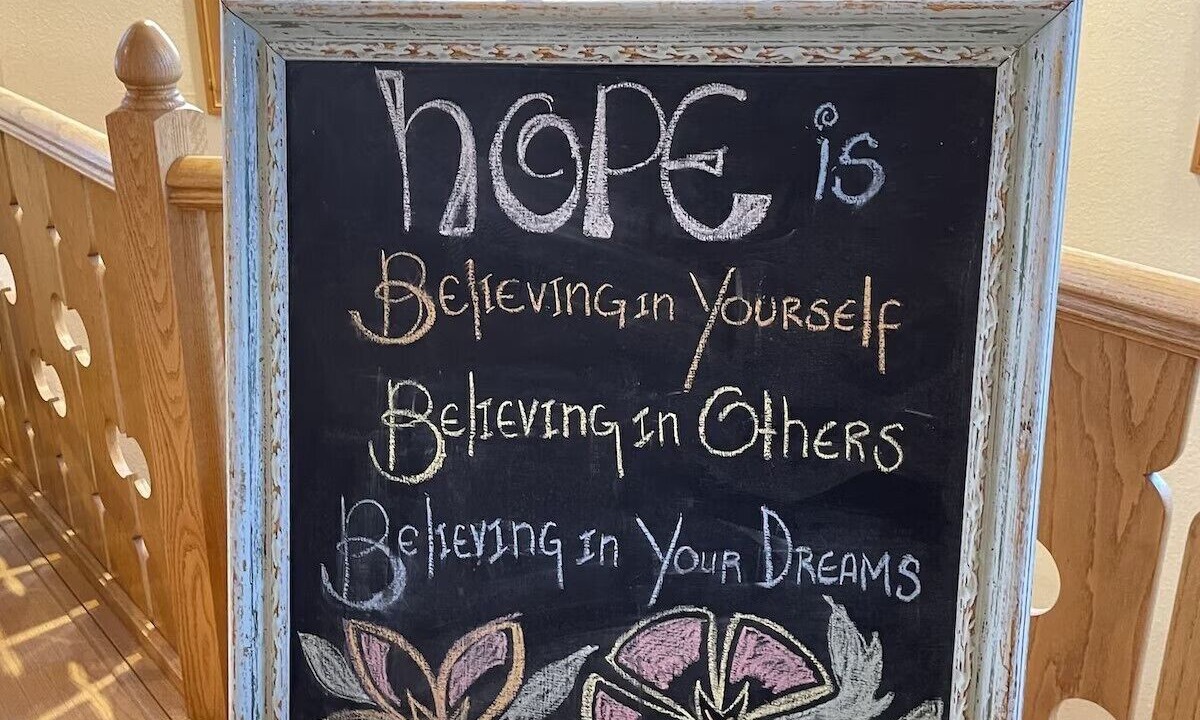 hOPE is
Believing in Yourself
Believing in Others
Believing in Your Dreams